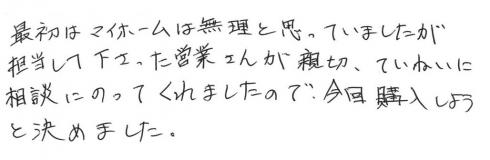 最初はマイホームは無理と思っていましたが
担当して下さった営業さんが親切、ていねいに
相談にのってくれましたので、今回購入しよう
と決めました。